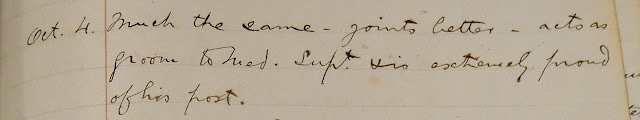 Oct. 4. Much the same - joints better - acts as
groom to Med. Supt. & is extremely proud
of his post.